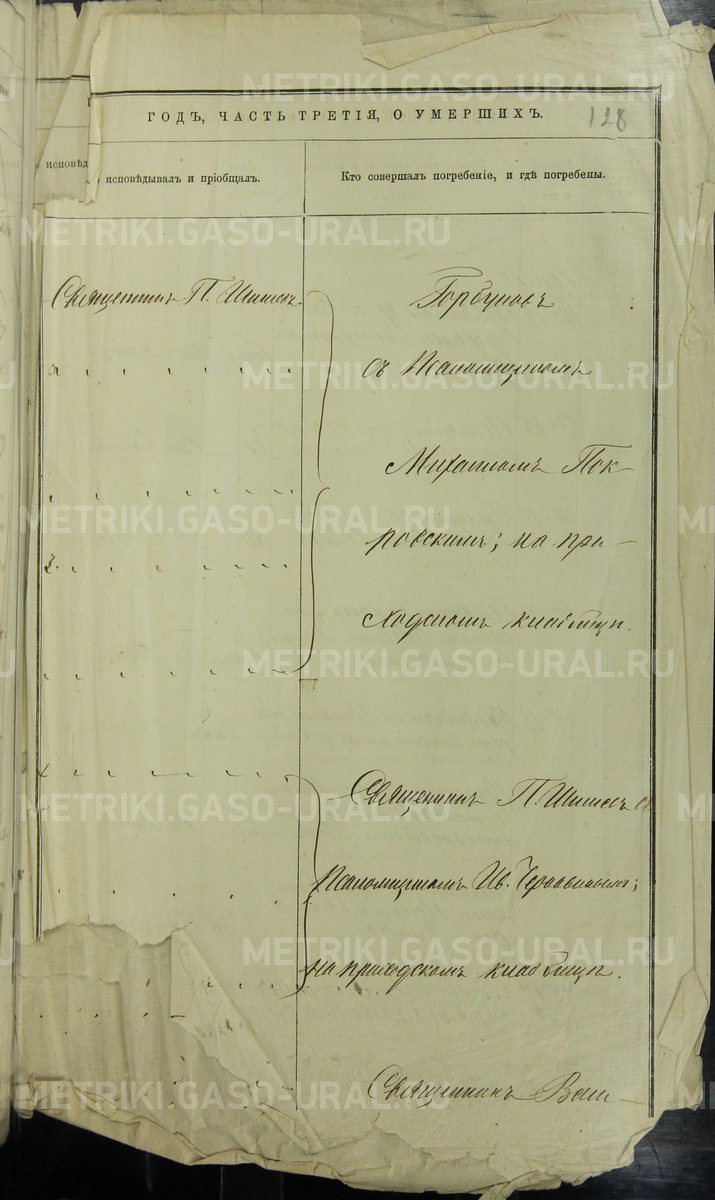 METRIKI.GASO-URAL.RU
ГОДЪ, ЧАСТЬ ТРЕТІЯ, О УМЕРШИХЪ.
128
исповѣд
исповѣдывалъ и пріобщалъ.
Кто совершалъ погребеніе, и гдѣ погребены.
Священникъ П.
Горбуновъ
съ Псаломщикомъ
Михаиломъ Пок-
ровскимъ; на при-
ходскомъ кладбищѣ.
Священникъ П.
Псаломщикомъ Ив.
на приходскомъ кладбищѣ.
Священникъ